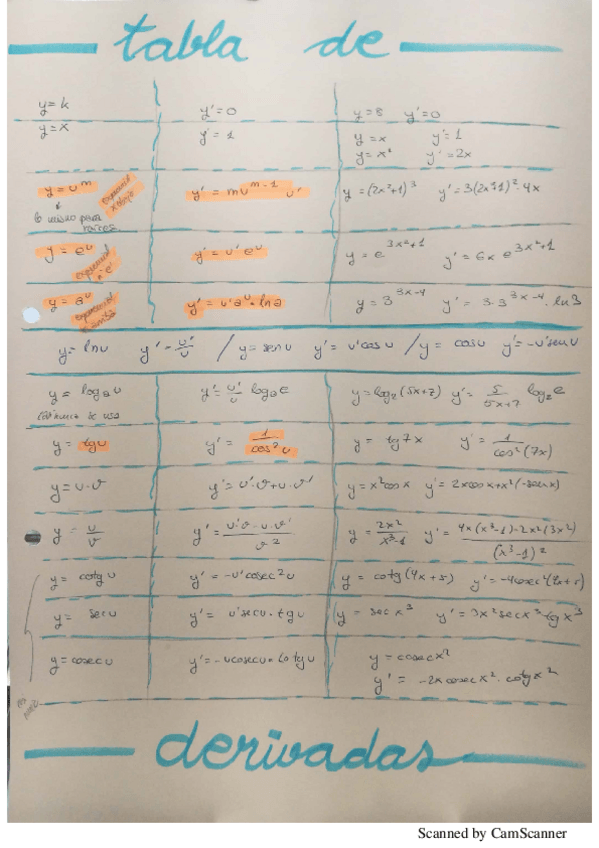 tabla de
y = k y' = 0 y = 8 y' = 0
y = x y' = 1 y = x y' = 1
y = x² y' = 2x
y = u^m y' = m u^(m-1) u' y = (2x²+1)³ y' = 3(2x²+1)²·4x
lo mismo para
raíces
y = e^u y' = u' e^u y = e^(3x²+1) y' = 6x e^(3x²+1)
exponencial
y = a^u y' = u' a^u · ln a y = 3^(3x-4) y' = 3·3^(3x-4) · ln 3
exponencial
y = ln u y' = u'/u / y = sen u y' = u' cos u / y = cos u y' = -u' sen u
y = log_a u y' = u'/u log_a e y = log₂(5x+7) y' = 5/(5x+7) log₂ e
y = tg u y' = 1/cos² u y = tg 7x y' = 1/cos²(7x)
y = u·v y' = u'·v + u·v' y = x² cos x y' = 2x cos x + x²(-sen x)
y = u/v y' = (u'·v - u·v')/v² y = 2x²/(x³-1) y' = (4x(x³-1) - 2x²(3x²))/(x³-1)²
y = cotg u y' = -u' cosec² u y = cotg(4x+5) y' = -4cosec²(4x+5)
y = sec u y' = u' sec u · tg u y = sec x³ y' = 3x² sec x³ · tg x³
y = cosec u y' = -u cosec u · cotg u y = cosec x²
y' = -2x cosec x² · cotg x²
derivadas
Scanned by CamScanner